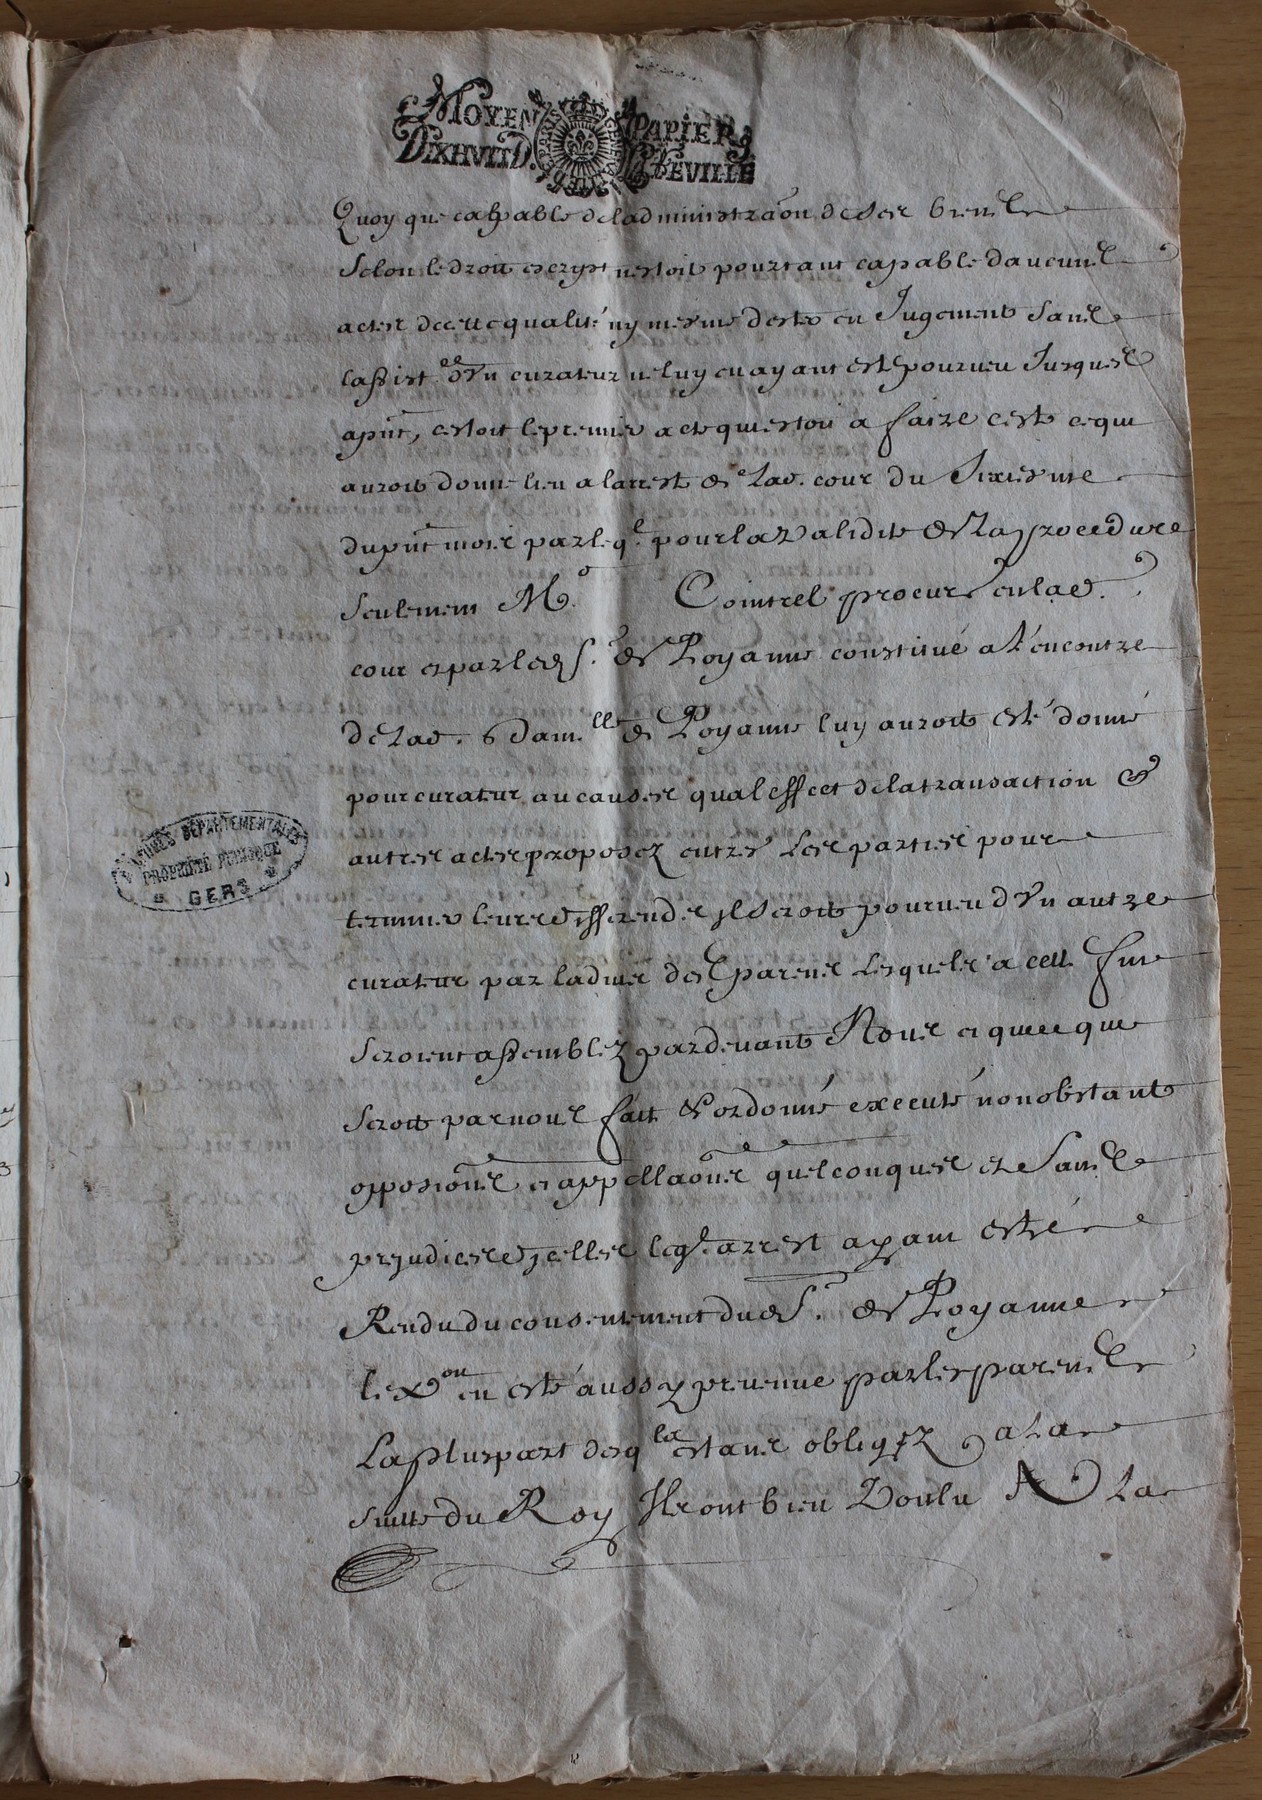 MOYEN PAPIER
DIXHVIT D. LA FEVILLE
Quoy que capable de ladministraon de ses biens
Selon le droit escrypt nestoit pourtant capable daucuns
actes de cette qualité ny mesme dester en Jugement sans
lassistce d'Vn curateur ne luy en ayant esté pourueu Jusques
apnt, cestoit le premier acte quiestoit a faire cest ce qui
auroit donné lieu a larrest de lad. cour du sixiesme
du pnt mois par leql. pour la Validité de la procedure
seulement Me. Cointrel procur. en lad.
cour et par led. sr. de Poyanne constitué a l'encontre
de lad. Damlle de Poyanne luy auroit esté donné
pour curateur au causes qual effect de la transaction et
autres actes proposez entre les parties pour
terminer leurs differends jl seroit pourueu d'Vn autre
curateur par laduis des parens lesquels a cette fin
seroient assemblez pardeuant Nous et que ce que
seroit par nous fait et ordonné executé nonobstant
opposions et appellaons quelconques et sans
prejudice d'jcelles leql. arrest ayant esté
Rendu du consentement dud. sr. de Poyanne
lexon en esté aussy preuenue par les parens
La pluspart desqls estans obligez a la
suitte du Roy Ils ont bien Voulu A La
ARCHIVES DÉPARTEMENTALES
PROPRIÉTÉ PUBLIQUE
GERS